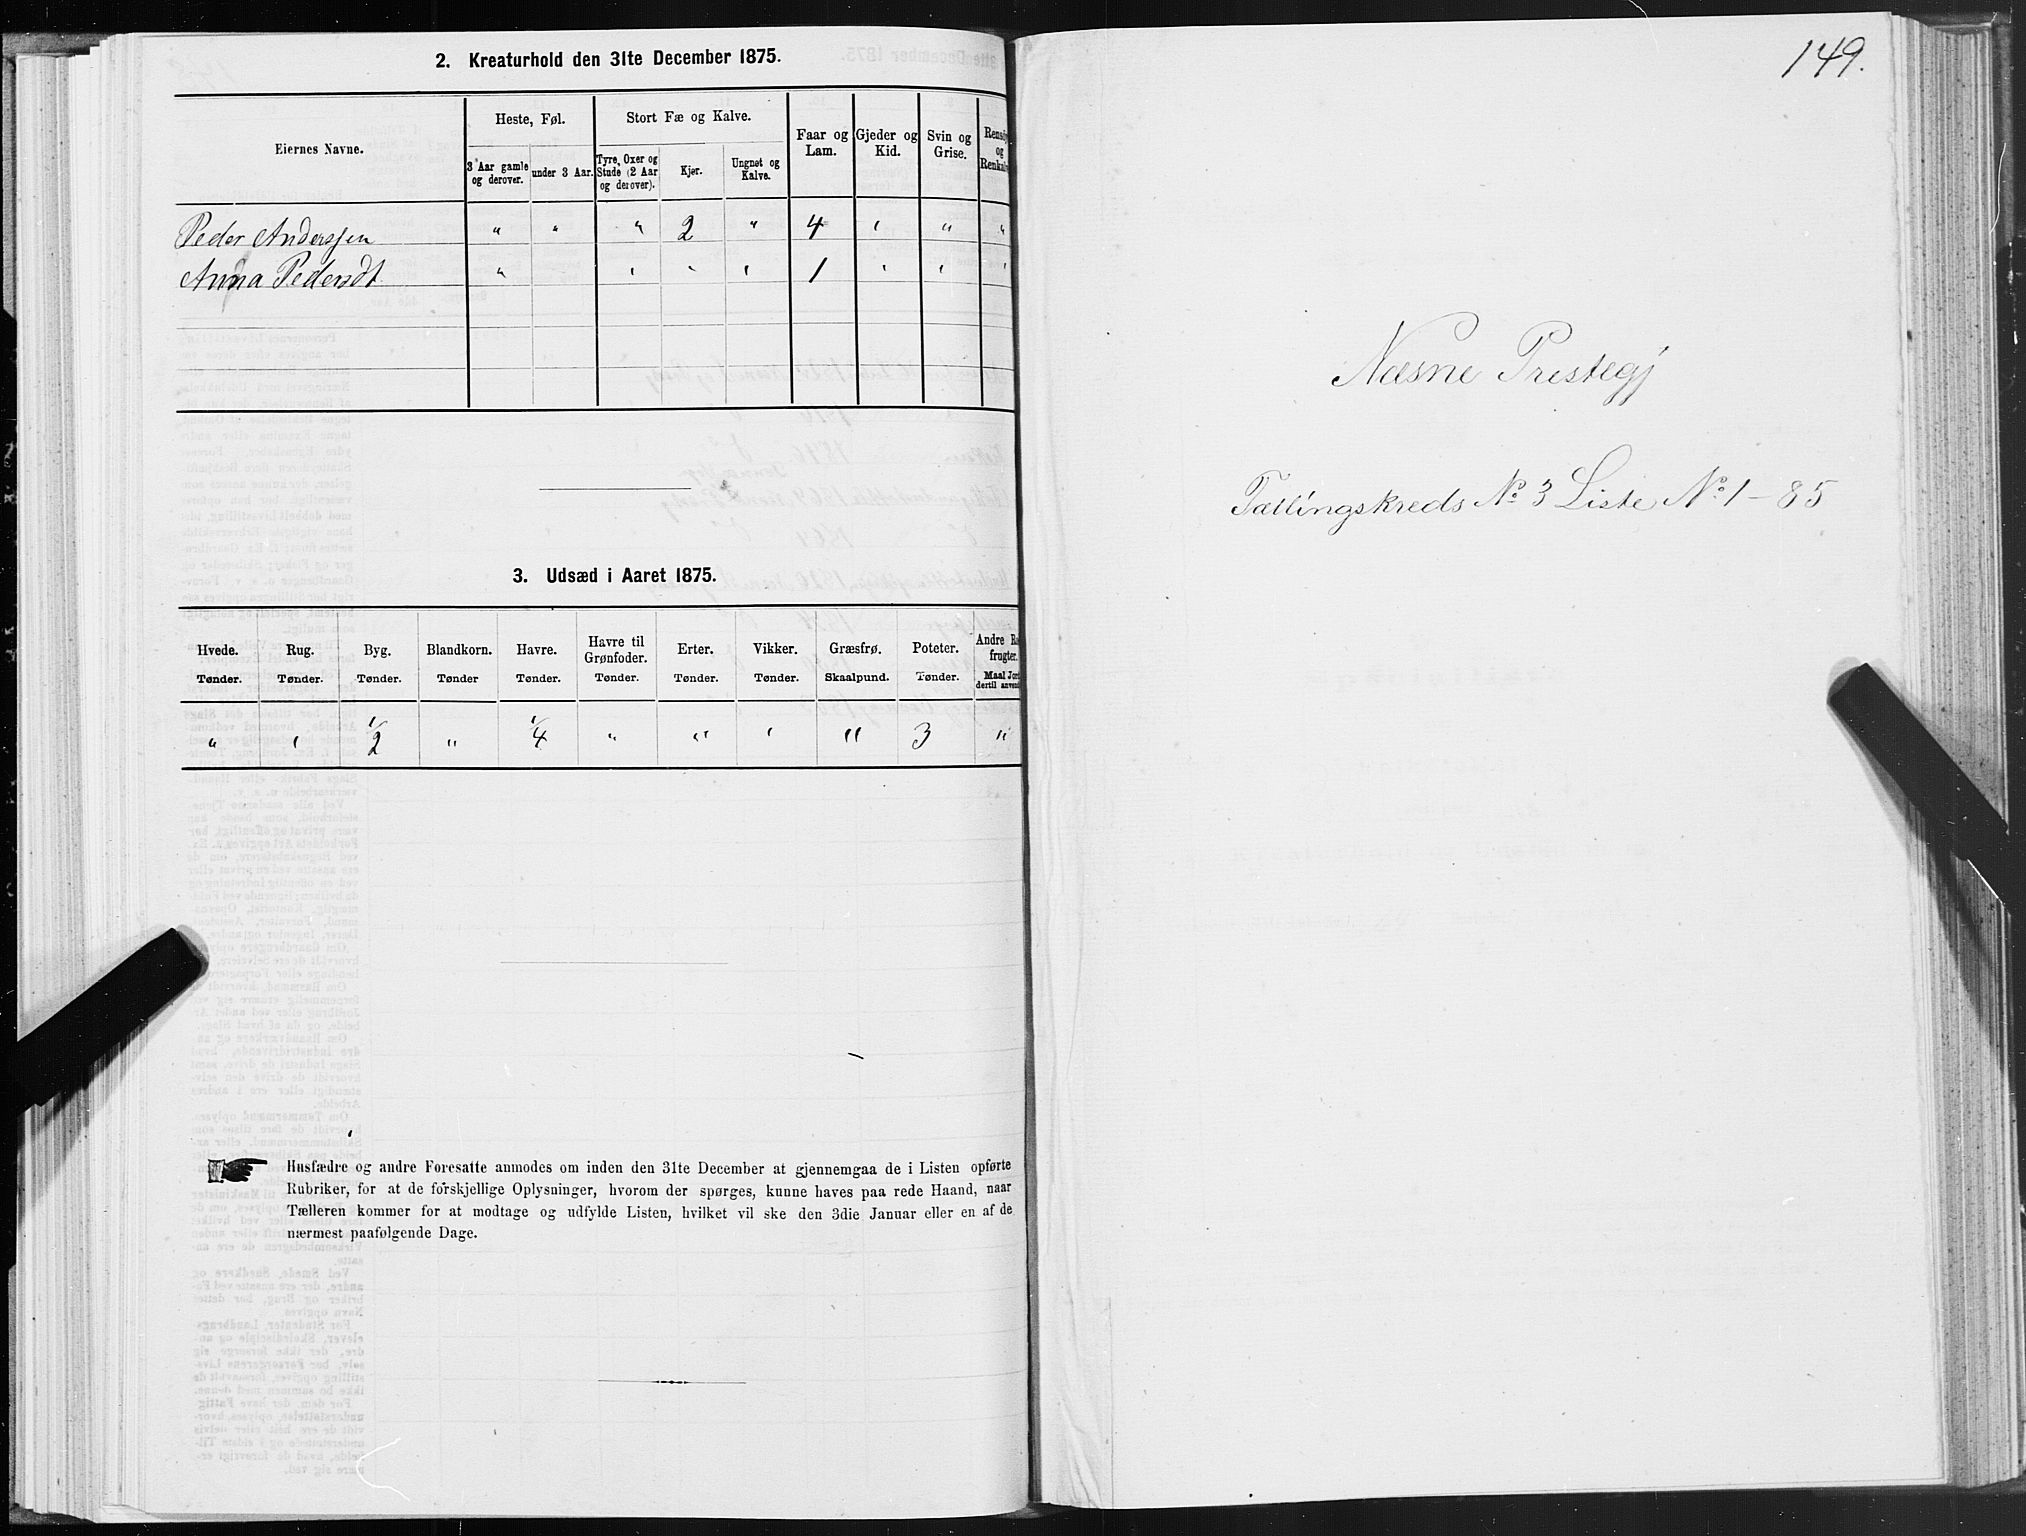 2. Kreaturhold den 31te December 1875.
Eiernes Navne.
Heste, Føl.
Stort Fæ og Kalve.
Faar og Lam.
Gjeder og Kid.
Svin og Grise.
og
3 Aar gamle og derover.
under 3 Aar.
Tyre, Oxer og Stude (2 Aar og derover).
Kjør.
Ungnøt og Kalve.
Peder Anderssen " " " 2 " 4 " " "
Anna Pedersdt " " " " 1 " " "
3. Udsæd i Aaret 1875.
Hvede. Rug. Byg. Blandkorn. Havre. Havre til Grønfoder. Erter. Vikker. Græsfrø. Poteter. Andre
Tønder. Tønder. Tønder. Tønder Tønder. Tønder. Tønder. Tønder. Skaalpund. Tønder. Maal Jord
" " 1/2 " 1/4 " " " " 3 "
Husfædre og andre Foresatte anmodes om inden den 31te December at gjennemgaa de i Listen opførte
Rubriker, for at de forskjellige Oplysninger, hvorom der spørges, kunne haves paa rede Haand, naar
Tælleren kommer for at modtage og udfylde Listen, hvilket vil ske den 3die Januar eller en af de
nærmest paafølgende Dage.
149.
Næsne Prestegj
Tællingskreds No 3 Liste No 1 - 85